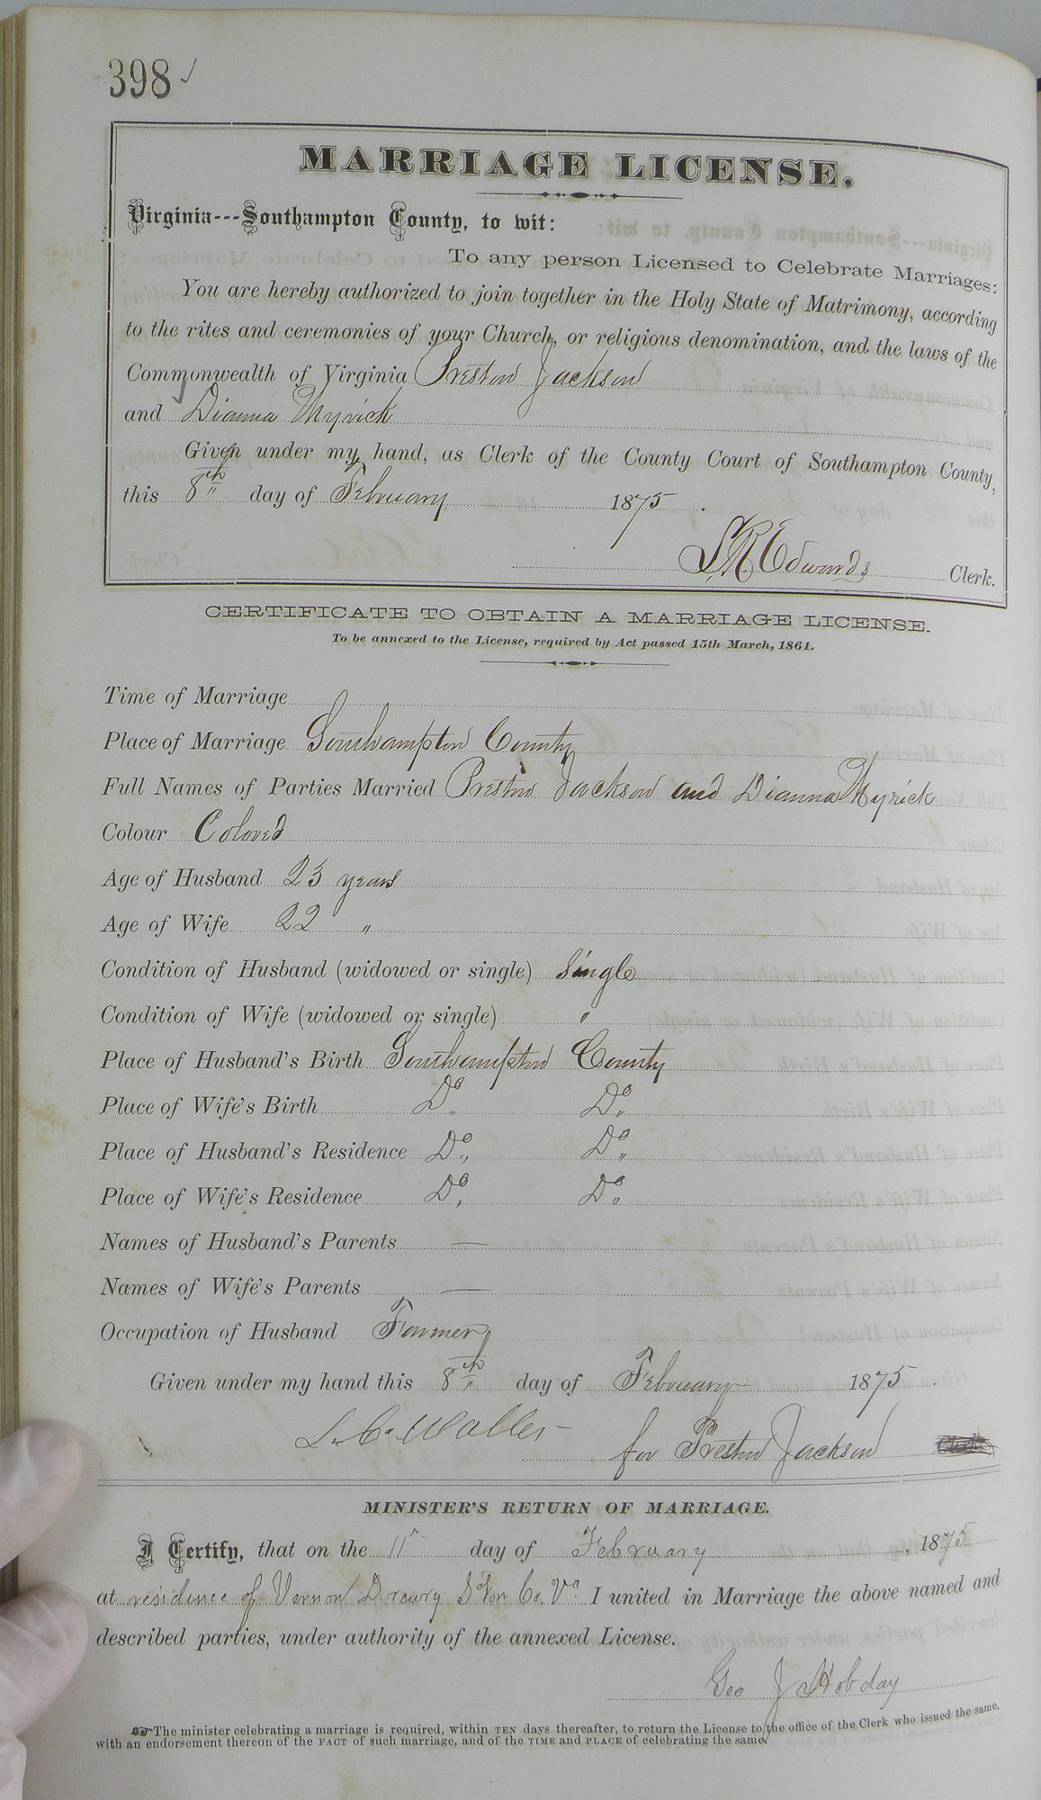 398 ✓
MARRIAGE LICENSE.
Virginia---Southampton County, to wit:
To any person Licensed to Celebrate Marriages:
You are hereby authorized to join together in the Holy State of Matrimony, according
to the rites and ceremonies of your Church, or religious denomination, and the laws of the
Commonwealth of Virginia Preston Jackson
and Dianna Myrick
Given under my hand, as Clerk of the County Court of Southampton County,
this 8th day of February 1875.
L. R. Edwards Clerk.
CERTIFICATE TO OBTAIN A MARRIAGE LICENSE.
To be annexed to the License, required by Act passed 15th March, 1861.
Time of Marriage
Place of Marriage Southampton County
Full Names of Parties Married Preston Jackson and Dianna Myrick
Colour Colored
Age of Husband 23 years
Age of Wife 22 "
Condition of Husband (widowed or single) Single
Condition of Wife (widowed or single) "
Place of Husband's Birth Southampton County
Place of Wife's Birth Do. Do.
Place of Husband's Residence Do. Do.
Place of Wife's Residence Do. Do.
Names of Husband's Parents —
Names of Wife's Parents —
Occupation of Husband Farmer
Given under my hand this 8th day of February 1875.
for Preston Jackson
MINISTER'S RETURN OF MARRIAGE.
I Certify, that on the 11th day of February, 1875
at residence of Vernon Drewry S'ton Co. Va. I united in Marriage the above named and
described parties, under authority of the annexed License.
Geo J Hobday
☞ The minister celebrating a marriage is required, within TEN days thereafter, to return the License to the office of the Clerk who issued the same,
with an endorsement thereon of the FACT of such marriage, and of the TIME and PLACE of celebrating the same.